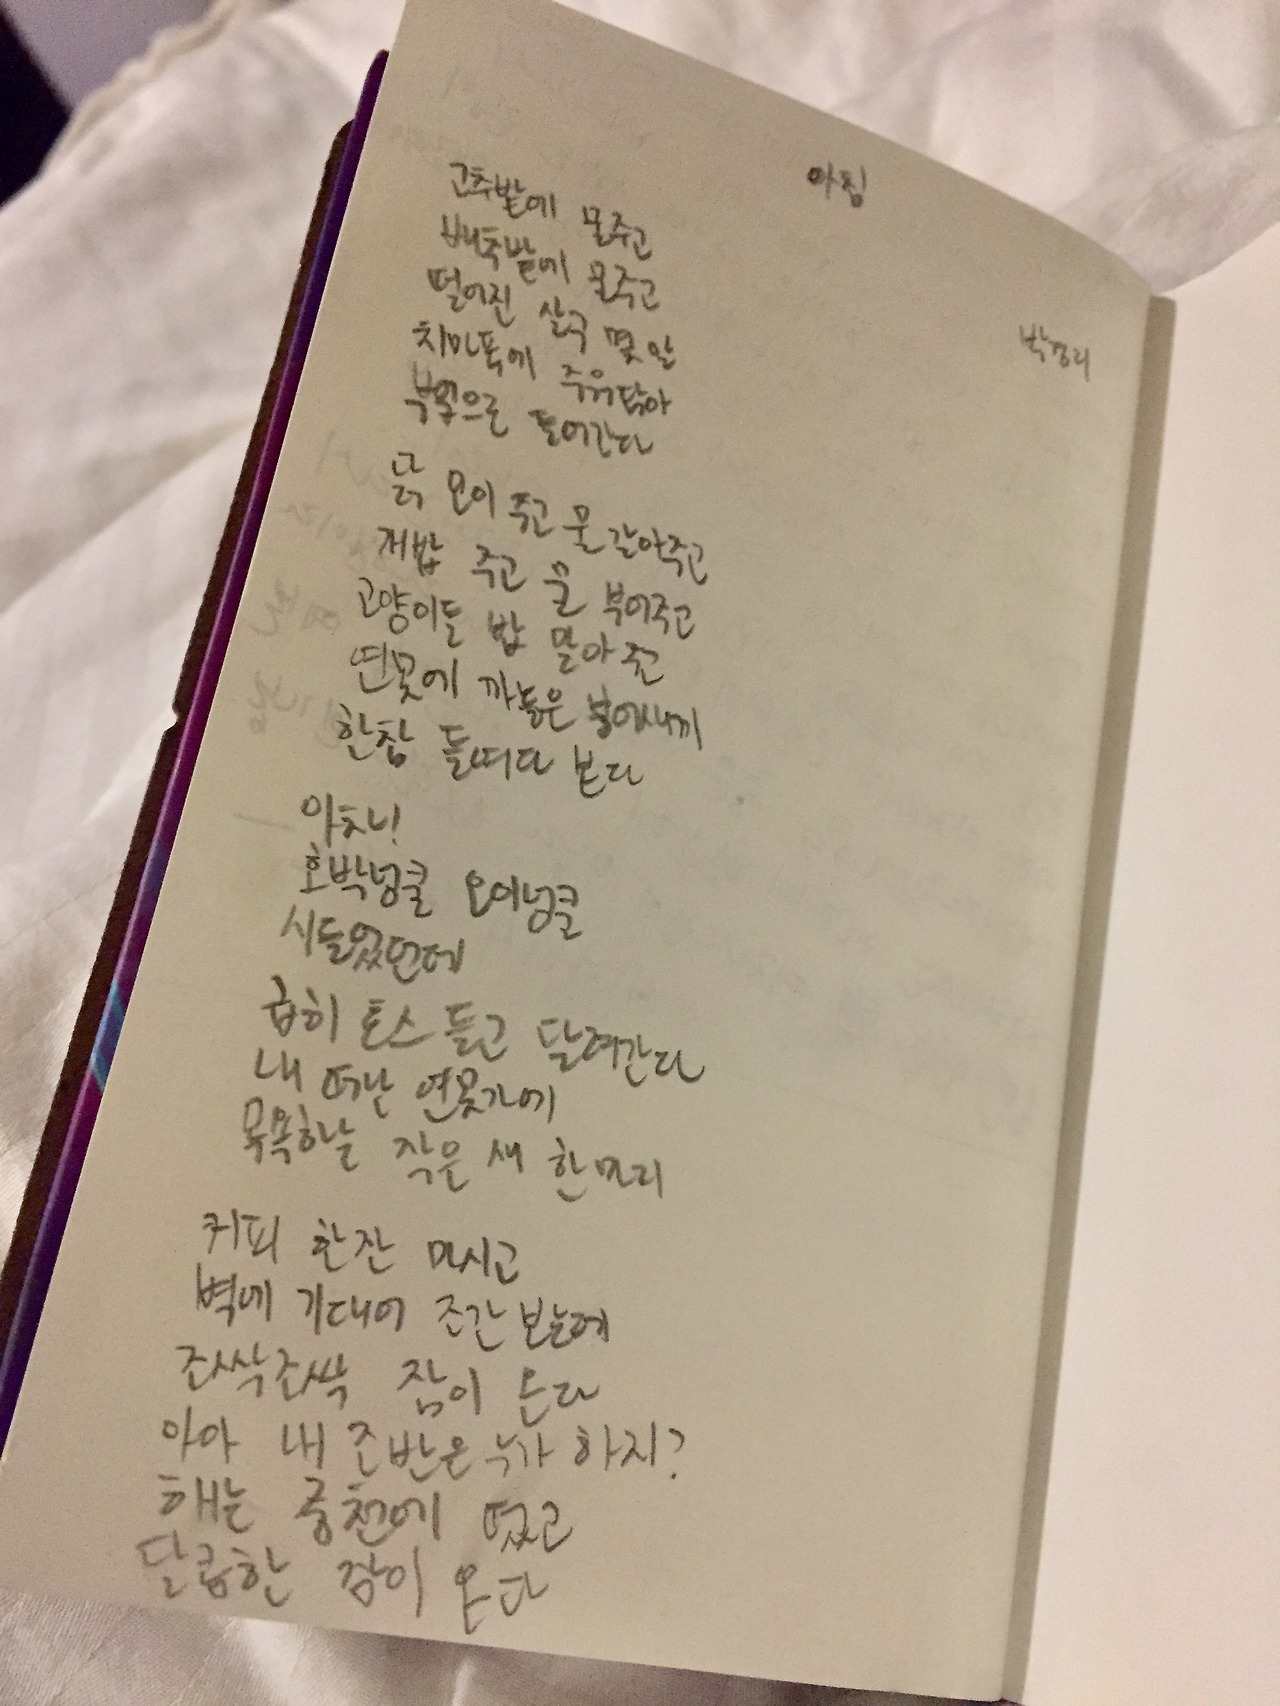 아침
박경리
고추밭에 물주고
배추밭에 물주고
떨어진 살구 몇알
치마폭에 주워담아
부엌으로 들어간다
닭 모이 주고 물 갈아주고
개밥 주고 물 부어주고
고양이들 밥 말아 주고
연못에 까놓은 붕어새끼
한참 들여다 본다
아차!
호박넝쿨 오이넝쿨
시들었던데
급히 호스 들고 달려간다
내 떠난 연못가에
목욕하는 작은 새 한마리
커피 한잔 마시고
벽에 기대어 조간 보는데
조싹조싹 잠이 온다
아아 내 조반은 누가 하지?
해는 중천에 떴고
달콤한 잠이 온다